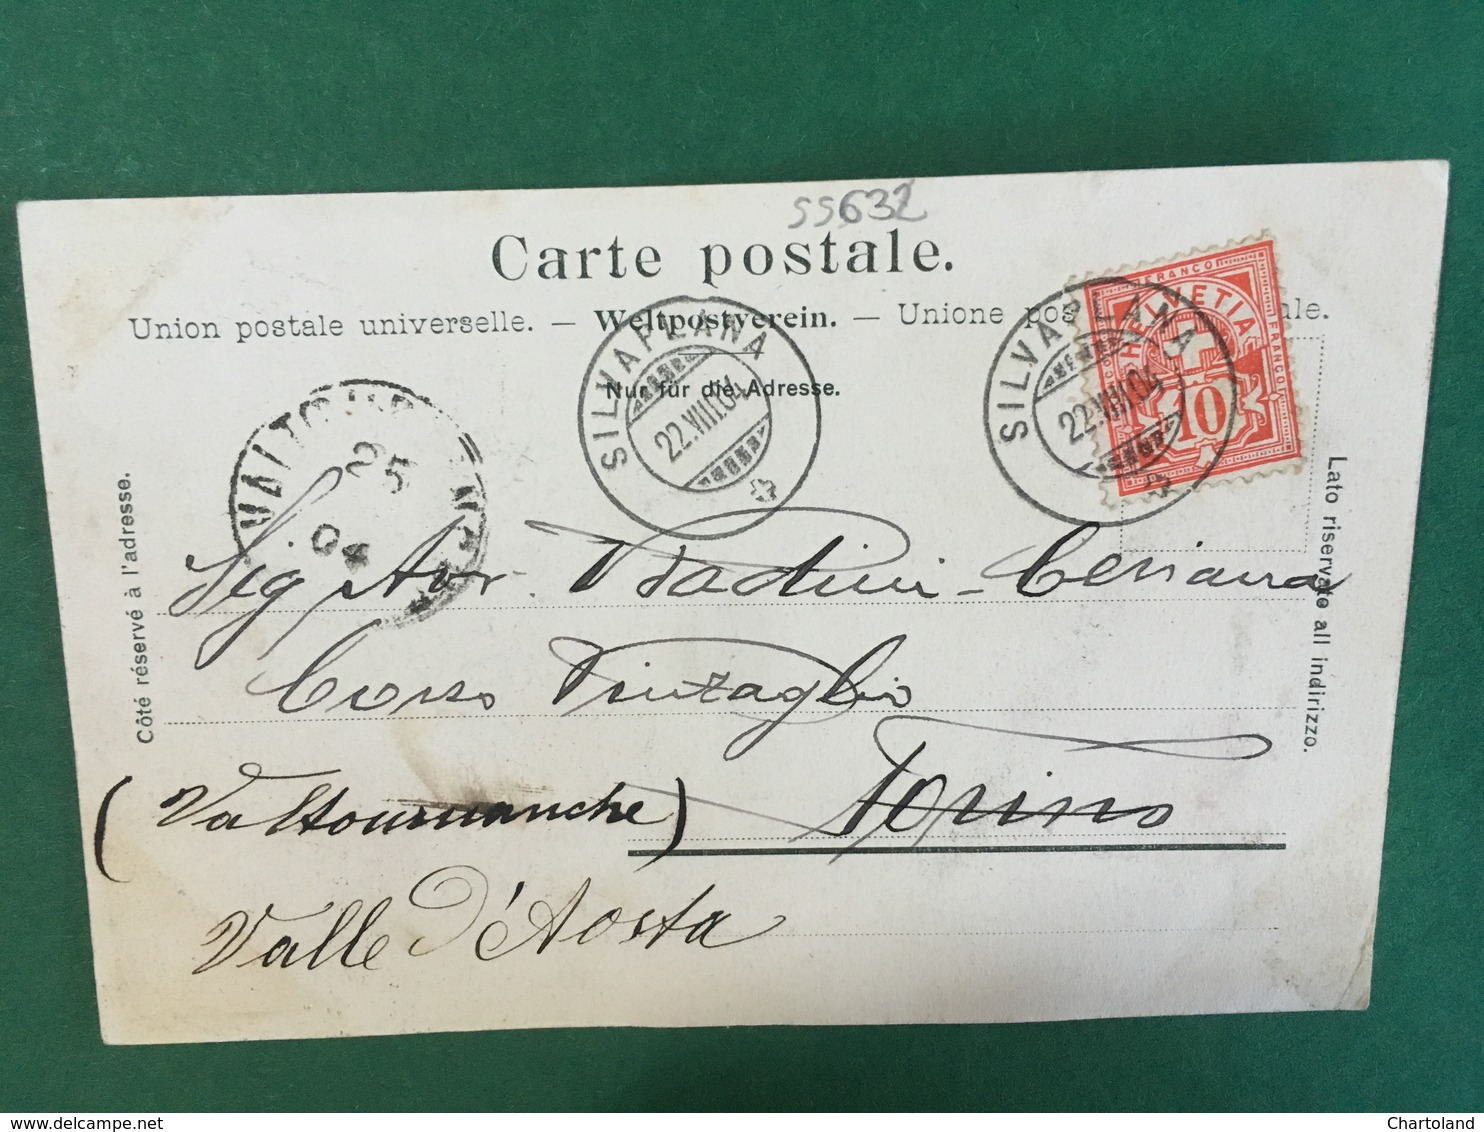 SS632
Carte postale.
Union postale universelle. — Weltpostverein. — Unione pos ale.
Nur für die Adresse.
SILVAPLANA
22.VIII.04
SILVAPLANA
22.VIII.04
FRANCO
HELVETIA
FRANCO
10
25
04
Côté réservé à l'adresse.
Lato riservato all indirizzo.
Sig Avv. Ceriana
Corso Vinzaglio
Torino
(Valtournanche)
Valle d'Aosta
www.delcampe.net
Chartoland